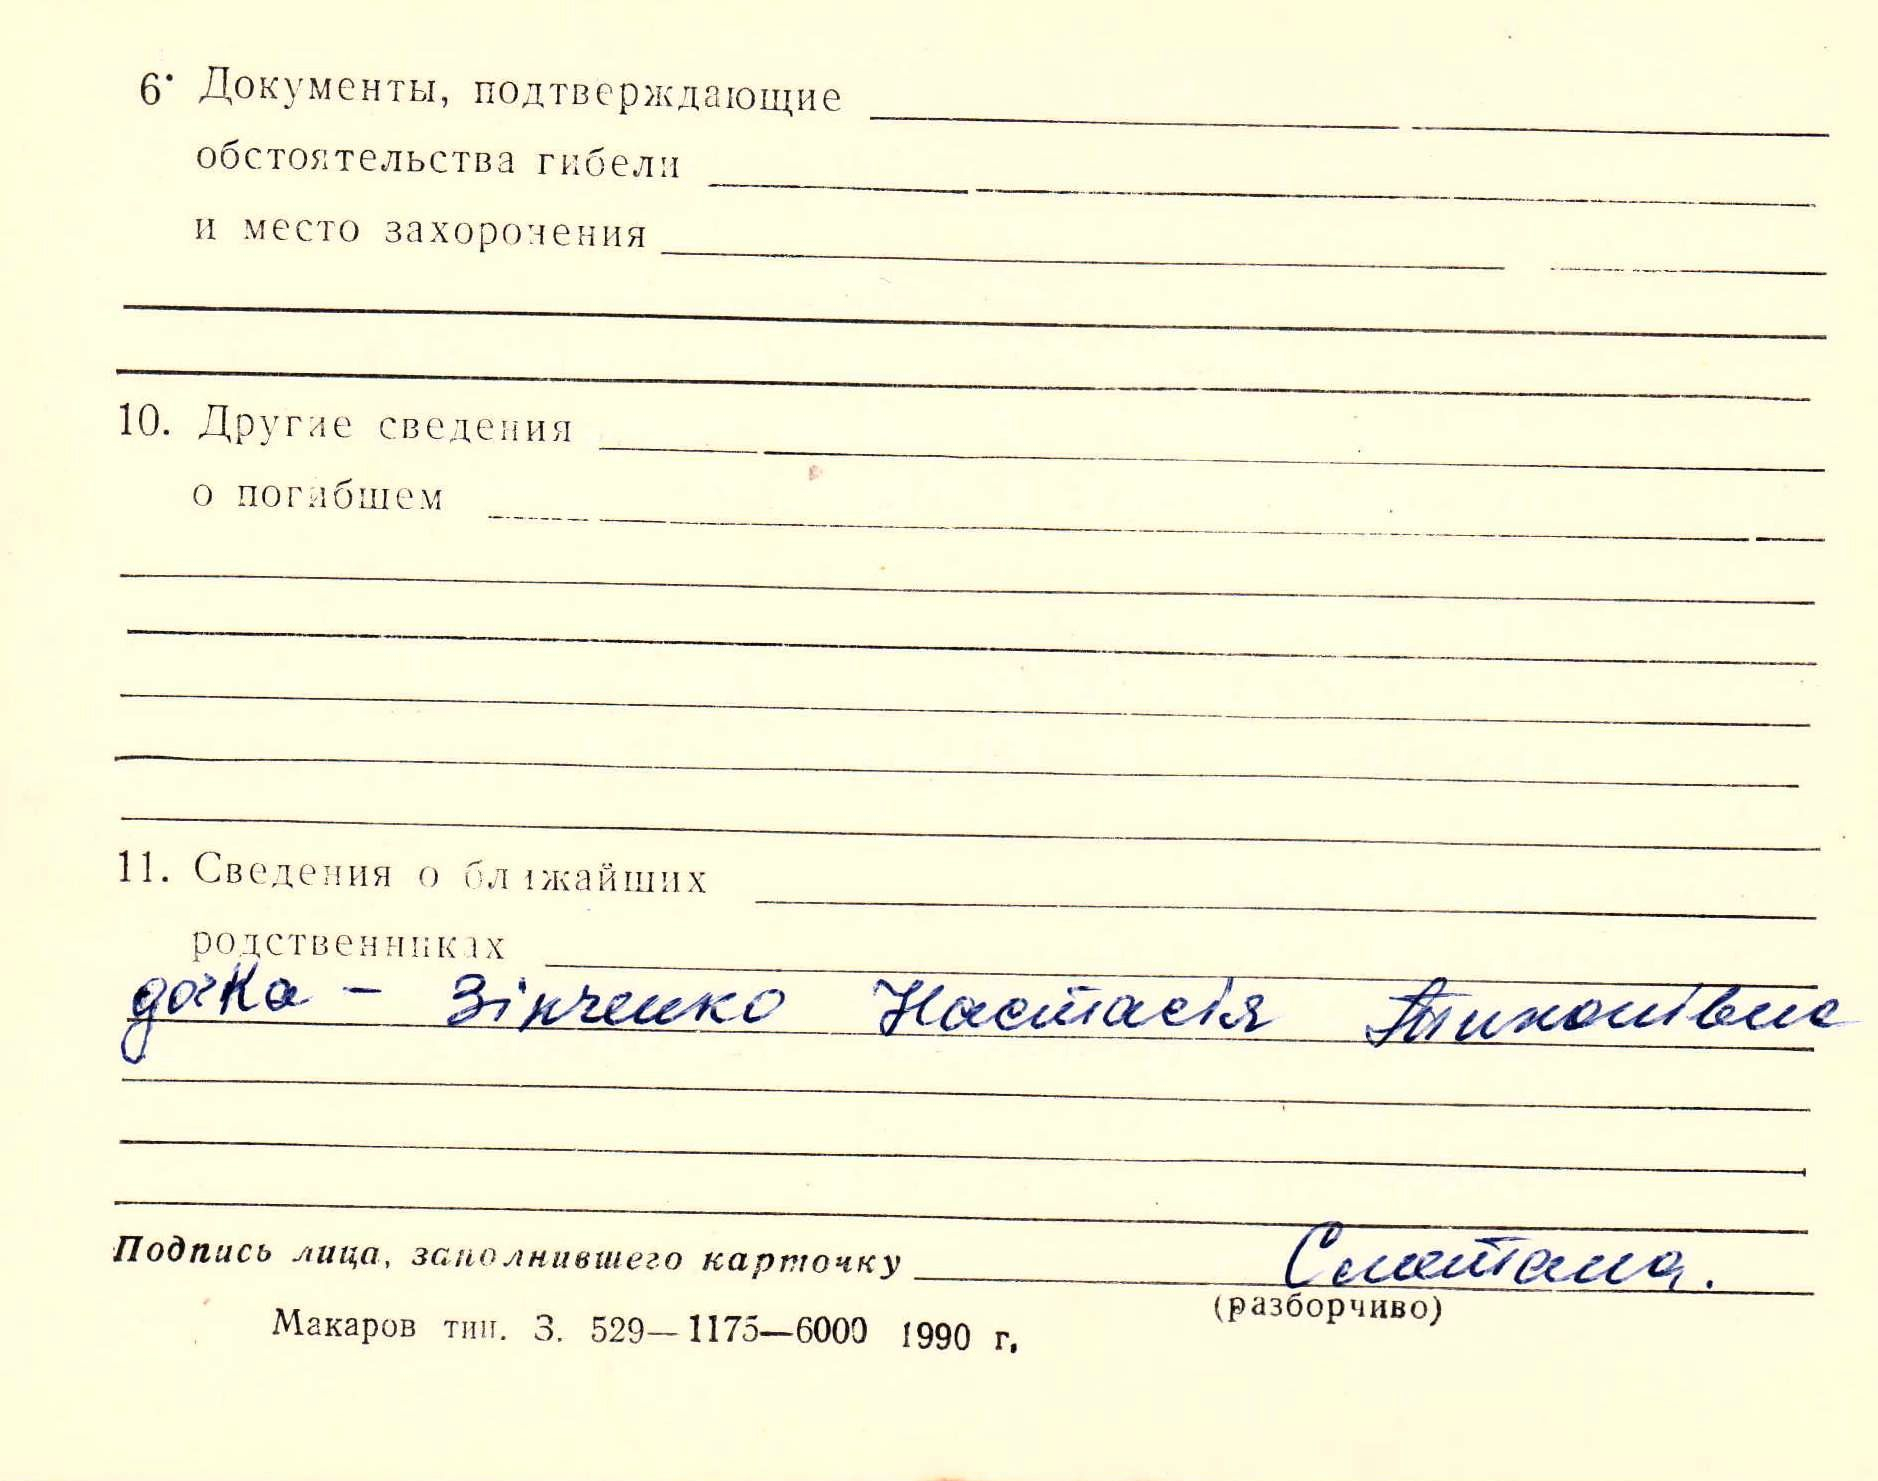 6. Документы, подтверждающие
обстоятельства гибели
и место захоронения
10. Другие сведения
о погибшем
11. Сведения о ближайших
родственниках
дочка – Зінченко Настасія Тихонівна
Подпись лица, заполнившего карточку Сметана.
(разборчиво)
Макаров тип. З. 529—1175—6000 1990 г.